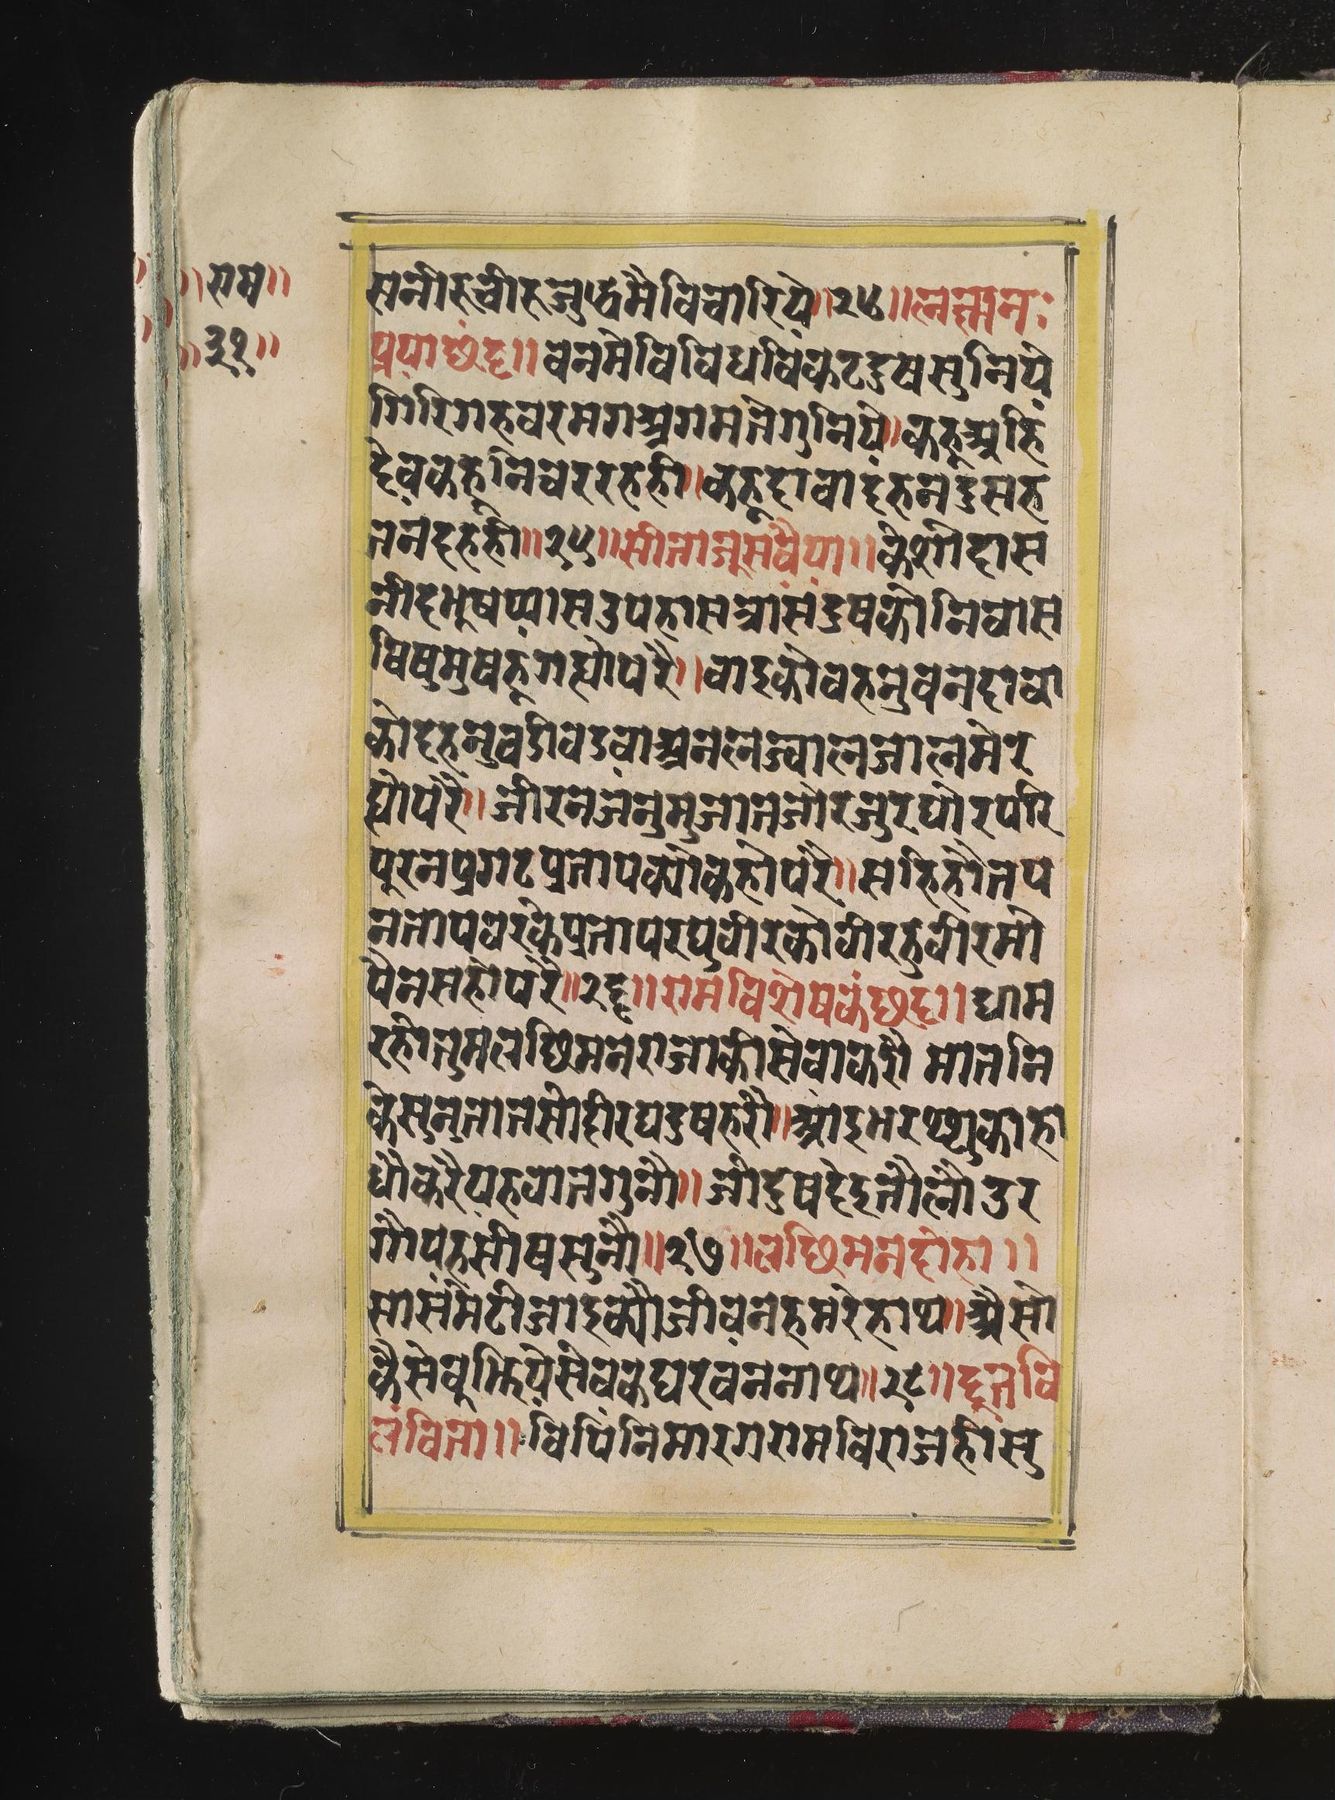 ॥राम॥
॥३१॥
सनीरुचीरजुधमैविचारिये॥२४॥लछमन:
प्रयाछंद॥वनमेविविधविकटदुषसुनिये
गिरिगहवरमगअगमतेगुनिये॥कहूअहि
देवकहूनिचररहही॥कहूदावादहनदुसह
तनदहही॥२५॥सीताजूसवैया॥केशौदास
नीदभूषप्याससउपहासत्राससंदुषकौनिवास
विषुमुषहूगह्योपरै॥वाइकोवहनुवनदावा
कोदहनुवडीवडवाअनलज्वालजालमेर
ह्योपरै॥जीरनजनमुजातजोरजुरघोरपरि
पूरनप्रगटप्रतापक्योकहोपरै॥सहिहौतप
नतापवरकेप्रतापरघुवीरकोवीरहुवीरमो
पेनसहोपरै॥२६॥रामविशेषकंछंद॥धाम
रहोतुमलछिमनराजाकीसेवाकरौ मातनि
केसुनुतातसोदीरघदुषहरौ॥आइभरथ्थुकाहा
धौकरैयहवातगुनौ॥जौदुषदेइतौलौउर
गौयहसीषसुनौ॥२७॥लछिमनदोहा॥
सासंमेटीजाइक्यौजीवनहमरेहाथ॥अैसो
कैसेवूझियेसेवकघरवननाथ॥२८॥द्रुतवि
लंवित॥विपिनिमारगरामविराजहीसु